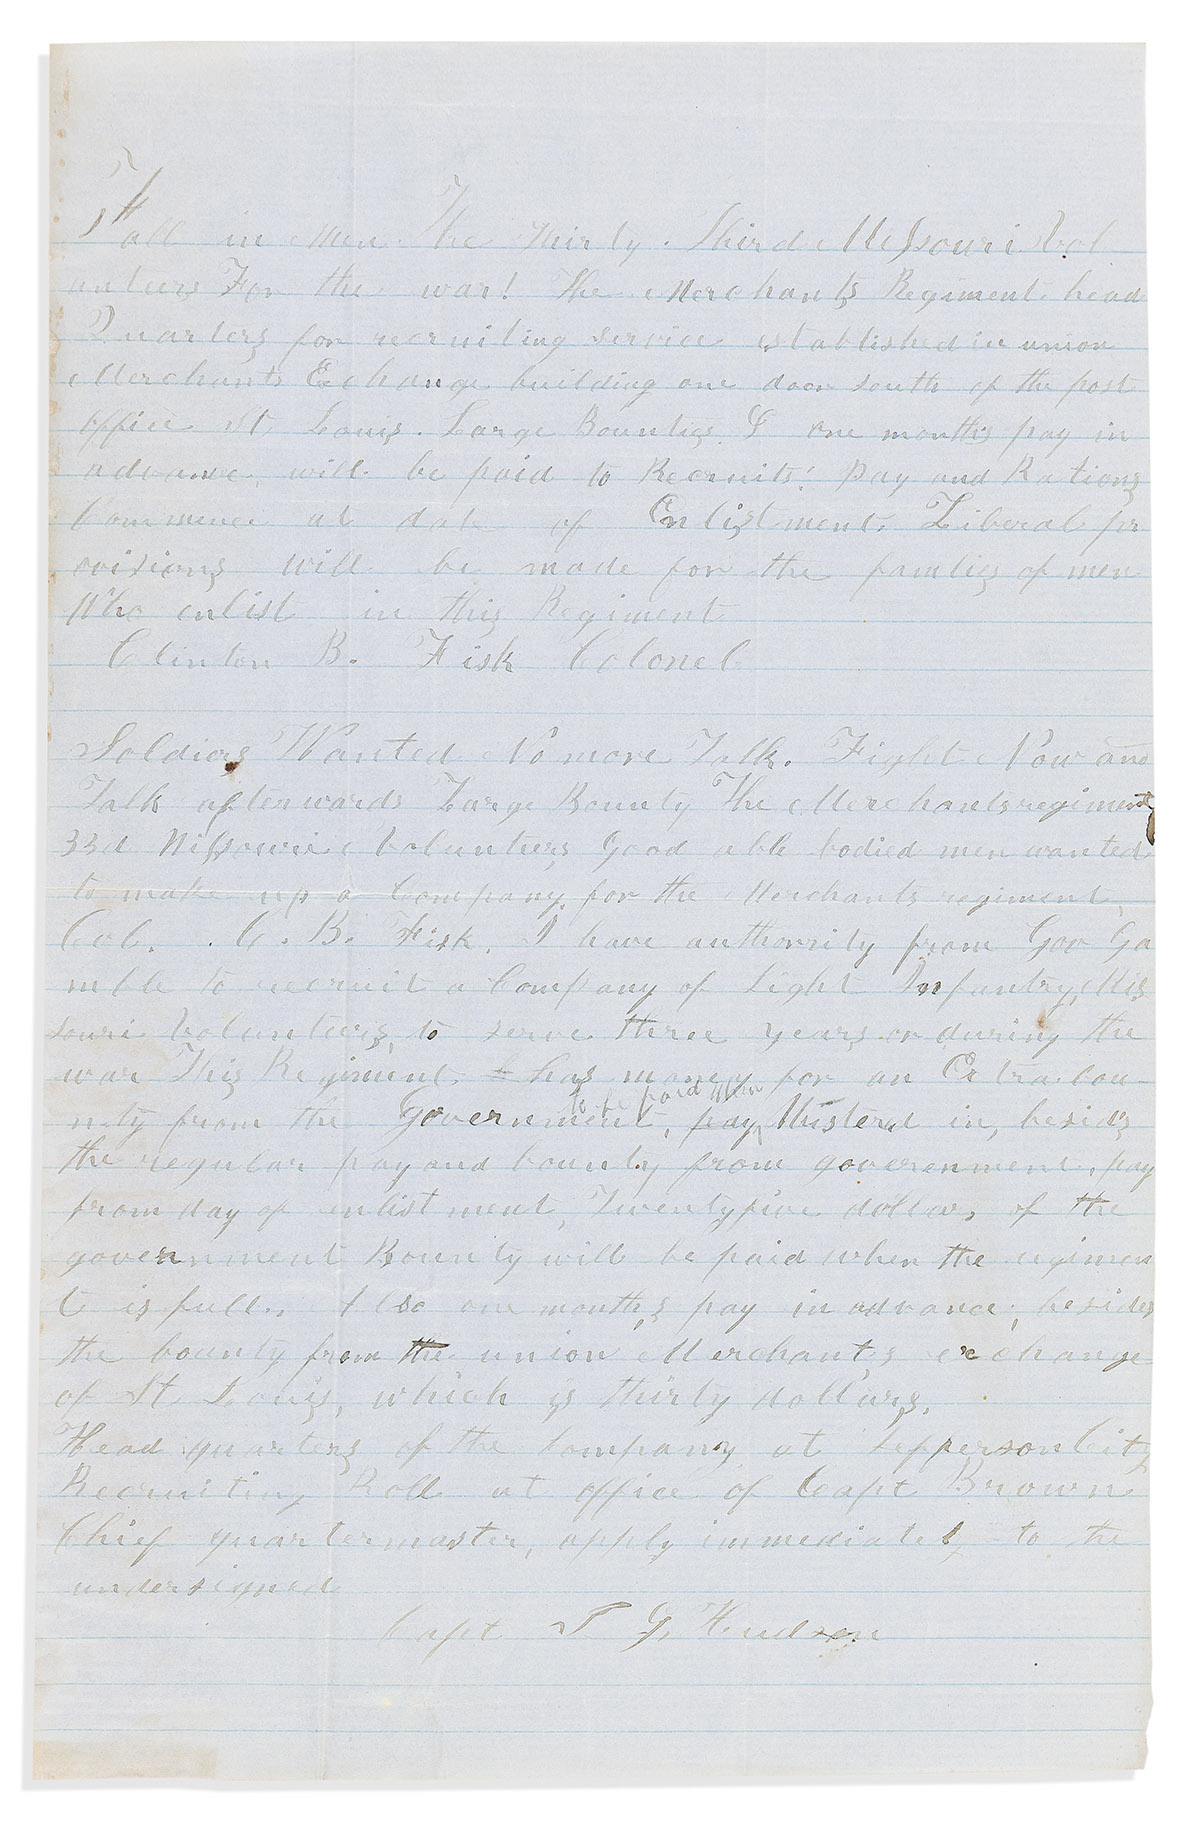 Fall in Men The Thirty Third Missouri Vol
unteers For the war! The Merchants Regiment head
Quarters for recruiting service established in union
Merchants Echange building one door south of the post
office St Louis. Large Bounties & one months pay in
advance, will be paid to Recruits! Pay and Rations
Commence at date of Enlistment. Liberal pr
ovisions will be made for the families of men
Who enlist in this Regiment
Clinton B. Fisk Colonel
Soldiers Wanted No more Talk. Fight Now and
Talk afterwards Large Bounty The Merchants regiment
33d Missowri Volunteers, Good able bodied men wanted
to make up a Company for the Merchants regiment,
Col. C. B. Fisk. I have authority from Gov Ga
mble to recruit a Company of Light Infantry, Mis
souri Volunteers, to serve three years or during the
war This Regiment has money for an Extra bou
to be paid when
nty from the Government, pay Mustered in, besides
the regular pay and bounty from goverenment. pay
from day of enlistment, Twentyfive dollars, of the
government Bounty will be paid when the regimen
t is full., Also one months pay in advance, besides
the bounty from the union Merchants exchange
of St Louis, which is thirty dollars.
Head quarters of the Company at Jefferson City
Recruiting Roll at office of Capt Brown
Chief quartermaster, apply immediately to the
undersigned
Capt T G Hudson